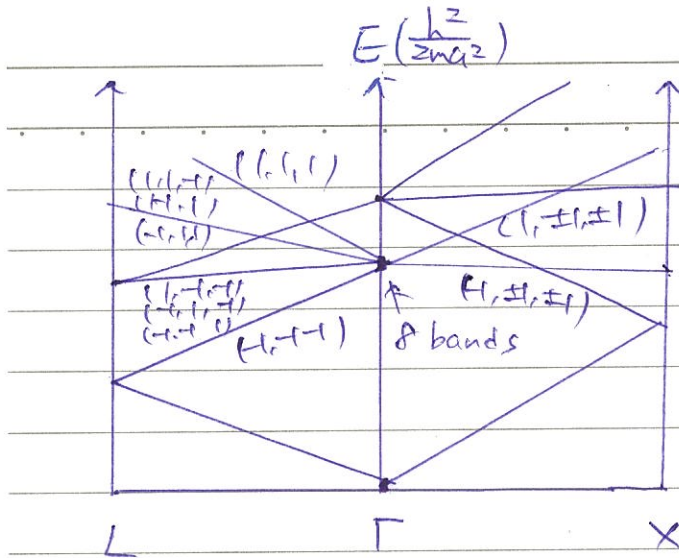 E(h²/2ma²)
(1,1,1)
(1,1,-1)
(1,-1,1)
(-1,1,1)
(1,±1,±1)
(1,-1,-1)
(-1,1,-1)
(-1,-1,1)
(-1,±1,±1)
(-1,-1-1)
8 bands
L Γ X